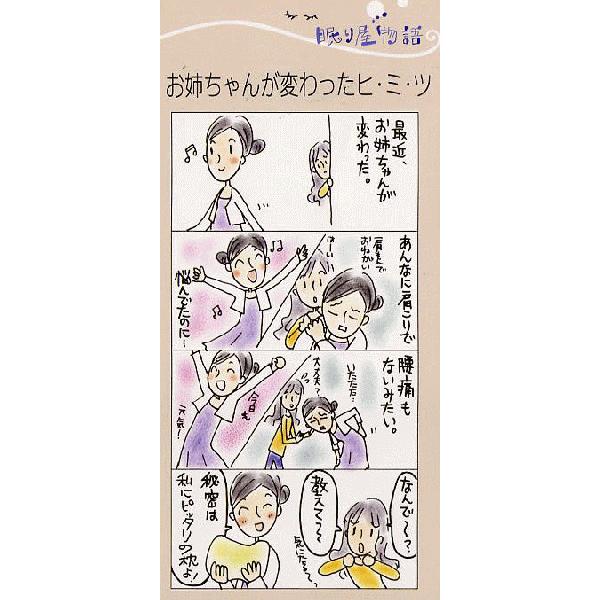 眠り屋物語
お姉ちゃんが変わったヒ・ミ・ツ
最近、
お姉ちゃんが
変わった。
あんなに肩こりで
肩まで
おねがい
悩んでたのに…
腰痛も
ないみたい。
いたたた…
大丈夫?
今日も
元気!
なんで〜?
教えてっ〜
気になる〜
秘密は
私にピッタリの枕よ!